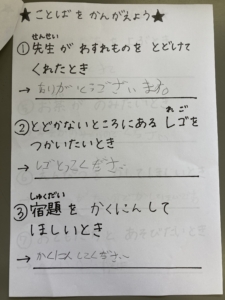 ★ことばを かんがえよう★
せんせい
①先生が わすれものを とどけて
くれたとき
→ ありがとうございます。
れご
②とどかないところにある レゴを
つかいたいとき
→ レゴとってください。
しゅくだい
③宿題を かくにんして
ほしいとき
→ かくにんしてください。